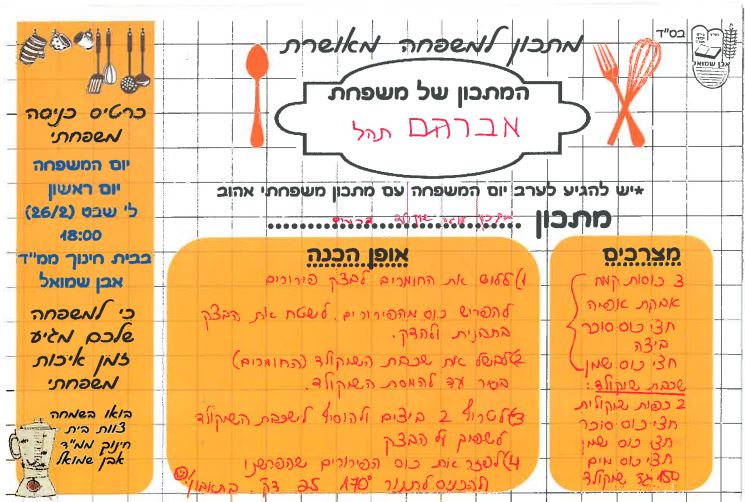 בס"ד
אבן שמואל
מתכון למשפחה מאושרת
המתכון של משפחת
אברהם תהל
*יש להגיע לערב יום המשפחה עם מתכון משפחתי אהוב
מתכון עוגת שוקולד פירורים
מצרכים
3 כוסות קמח
אבקת אפיה
חצי כוס סוכר
ביצה
חצי כוס שמן
שכבת שוקולד:
2 כפות שוקולית
חצי כוס סוכר
חצי כוס שמן
חצי כוס מים
150 גר' שוקולד
אופן הכנה
1) ללוש את החומרים לבצק פירורים
להפריש כוס מהפירורים. לשטח את הבצק
בתבנית ולהדק.
2) לבשל את שכבת השוקולד (החומרים)
בסיר עד להמסת השוקולד.
3) לטרוף 2 ביצים ולהוסיף לשכבת השוקולד
לשפוך על הבצק
4) לפזר את כוס הפירורים שהפרשנו
ולהכניס לתנור 170° 25 דק'. בתאבון!
כרטיס כניסה
משפחתי
יום המשפחה
יום ראשון
ל' שבט (26/2)
18:00
בבית חינוך ממ"ד
אבן שמואל
כי למשפחה
שלכם מגיע
זמן איכות
משפחתי
בואו בשמחה
צוות בית
חינוך ממ"ד
אבן שמואל